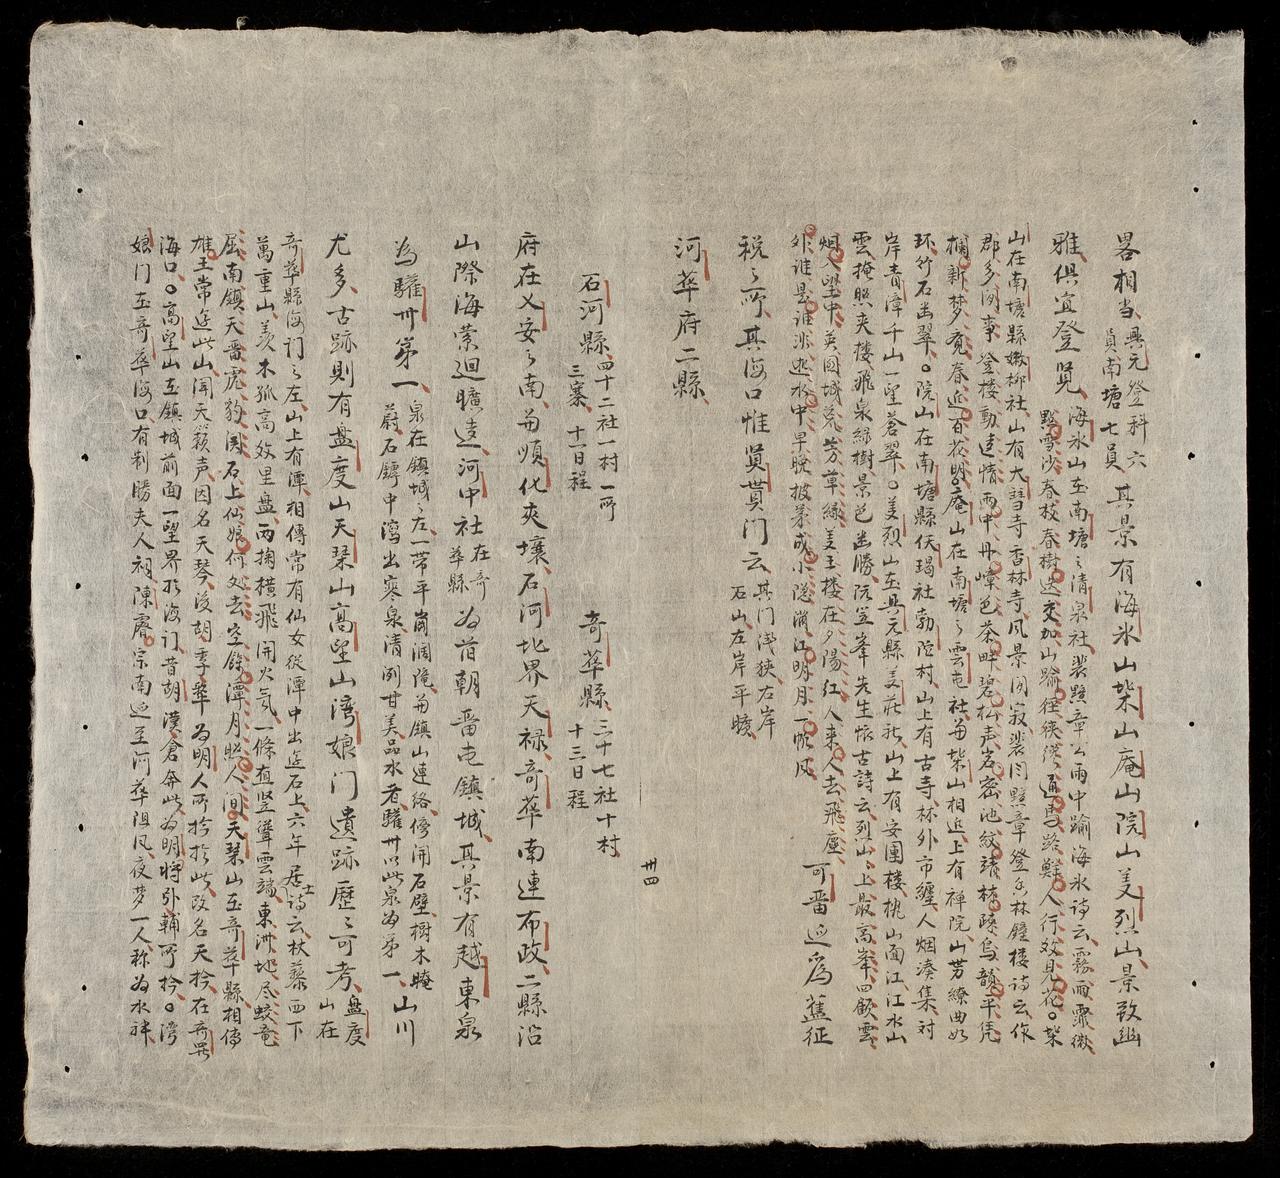 畧相当興元登科六
員南塘七員其景有海氷山柴山庵山院山美烈山景致幽
雅俱宜登覽海氷山在南塘〻清泉社裴黙章公雨中踰海氷诗云霧雨霏微
點雪沙春枝春樹迭交加山踰往狹纔通馬路鮮人行效見花○柴
山在南塘縣嫩柳社山有大雪寺香林寺风景闲寂裴闰黙章登香林鐘楼诗云作
郡多閒事登楼動遠情雨中丹嶂色茶畔碧松声岩密池紋靖林踈鳥韻平凭
欄新梦覺春近百花明○庵山在南塘〻雲屯社与柴山相近上有禅院山势繚曲如
环竹石幽翠○院山在南塘縣伕瑒社勃陀村山上有古寺林外市纏人烟湊集对
岸青漳千山一望蒼翠○美烈山在興元縣美莊社山上有安團楼枕山面江江水山
雲掩照夹楼飛泉綠樹景色幽勝阮笠峯先生怀古詩云列山〻上最高峯四歛雲
烟入望中英国城荒芳草綠美王楼在夕陽红人来人去飛塵
外谁是谁非逝水中早晚披菉成小隱滿江明月一帆风可畨巡為蓝征
税〻所其海口惟賢貫门云其门浅狹右岸
石山左岸平曠
河華府二縣
卅四
石河縣四十二社一村一所
三寨十一日程
奇華縣三十七社十村
十三日程
府在乂安〻南与順化夹壤石河北界天禄奇華南連布政二縣沿
山際海縈迴曠遠河中社在奇
華縣为前朝畨屯鎮城其景有越東泉
為驩州第一泉在鎮城〻左一带平崗濶陁与鎮山連络傍開石壁樹木晻
蔚石罅中瀉出寒泉清冽甘美品水者驩州以此泉为第一山川
尤多古跡則有盘度山天琹山高望山湾娘门遺跡歷〻可考盘度
山在
奇華縣海门〻左山上有潭相傳常有仙女從潭中出遊石上六年居士诗云杖藜西下
萬重山羡木孤高效里盘両掬横飛開火氣一條直竖聳雲端東洲地尽蛟竜
屈南鎮天畨虎豹闲石上仙娘何处去空餘潭月照人间○天琹山在奇華縣相傳
雄王常遊此山闻天籁声因名天琴後胡季犛为明人所擒於此改名天扲在奇㕵
海口○高望山在鎮城前面一望界於海门昔胡漢倉奔此为明将引輔所扲○湾
娘门在奇華海口有制勝夫人祠陳睿宗南巡至河華阻风夜梦一人称为水神